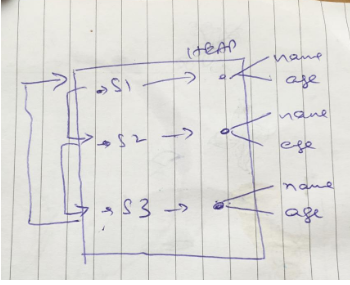 HEAP
name
S1 age
name
S2 age
name
S3 age